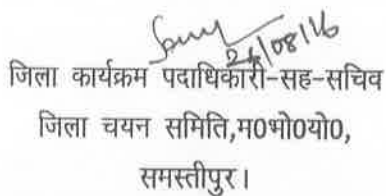 24/08/16
जिला कार्यक्रम पदाधिकारी-सह-सचिव
जिला चयन समिति,म0भो0यो0,
समस्तीपुर।